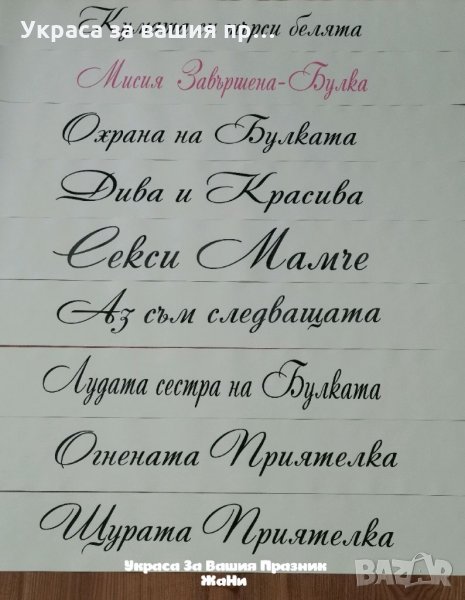 Украса за вашия пр...
Кумата си търси белята
Мисия Завършена-Булка
Охрана на Булката
Дива и Красива
Секси Мамче
Аз съм следващата
Лудата сестра на Булката
Огнената Приятелка
Щурата Приятелка
Украса За Вашия Празник
ЖаНи
BAZAR